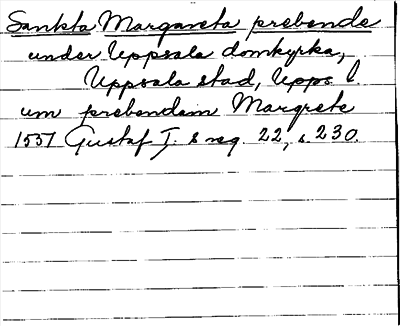 Sankta Margareta prebende
under Uppsala domkyrka,
Uppsala stad, Upps. l
um prebendam Margrete
1537 Gustaf I:s reg. 22, s. 230.